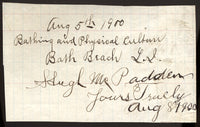 Aug 5th 1900
Bathing and Physical Culture
Bath Beach L.I.
Hugh McPadden
Yours Truly
Aug 5 1900